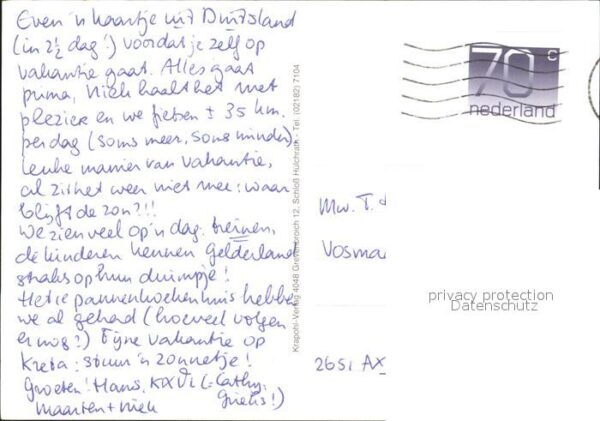 Even 'n kaartje uit Duitsland
(in 2½ dag!) voordat je zelf op
vakantie gaat. Alles gaat
prima, Niek haalt het met
plezier en we fietsen ± 35 km.
per dag (soms meer, soms minder)
Leuke manier van vakantie,
al zit het weer niet mee: waar
blijft de zon?!!
We zien veel op 'n dag.
de kinderen kennen Gelderland
straks op hun duimpje!
Het 1e pannenkoekenhuis hebben
we al gehad (hoeveel volgen
er nog?) Fijne vakantie op
Kreta: stuur 'n zonnetje!
Groeten! Hans, (= Cathy,
Maarten + Niek Grieks!)
Krapohl-Verlag 4048 Grevenbroich 12, Schloß Hülchrath - Tel. (02182) 7104
70 c
nederland
Mw. T.
Vosma
2651 AX
privacy protection
Datenschutz